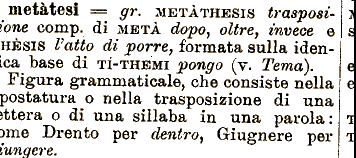 metàtesi = gr. METÀTHESIS trasposi-
ione comp. di METÀ dopo, oltre, invece e
THÈSIS l'atto di porre, formata sulla iden-
ica base di TÍ-THEMI pongo (v. Tema).
Figura grammaticale, che consiste nella
postatura o nella trasposizione di una
ettera o di una sillaba in una parola:
ome Drento per dentro, Giugnere per
iungere.